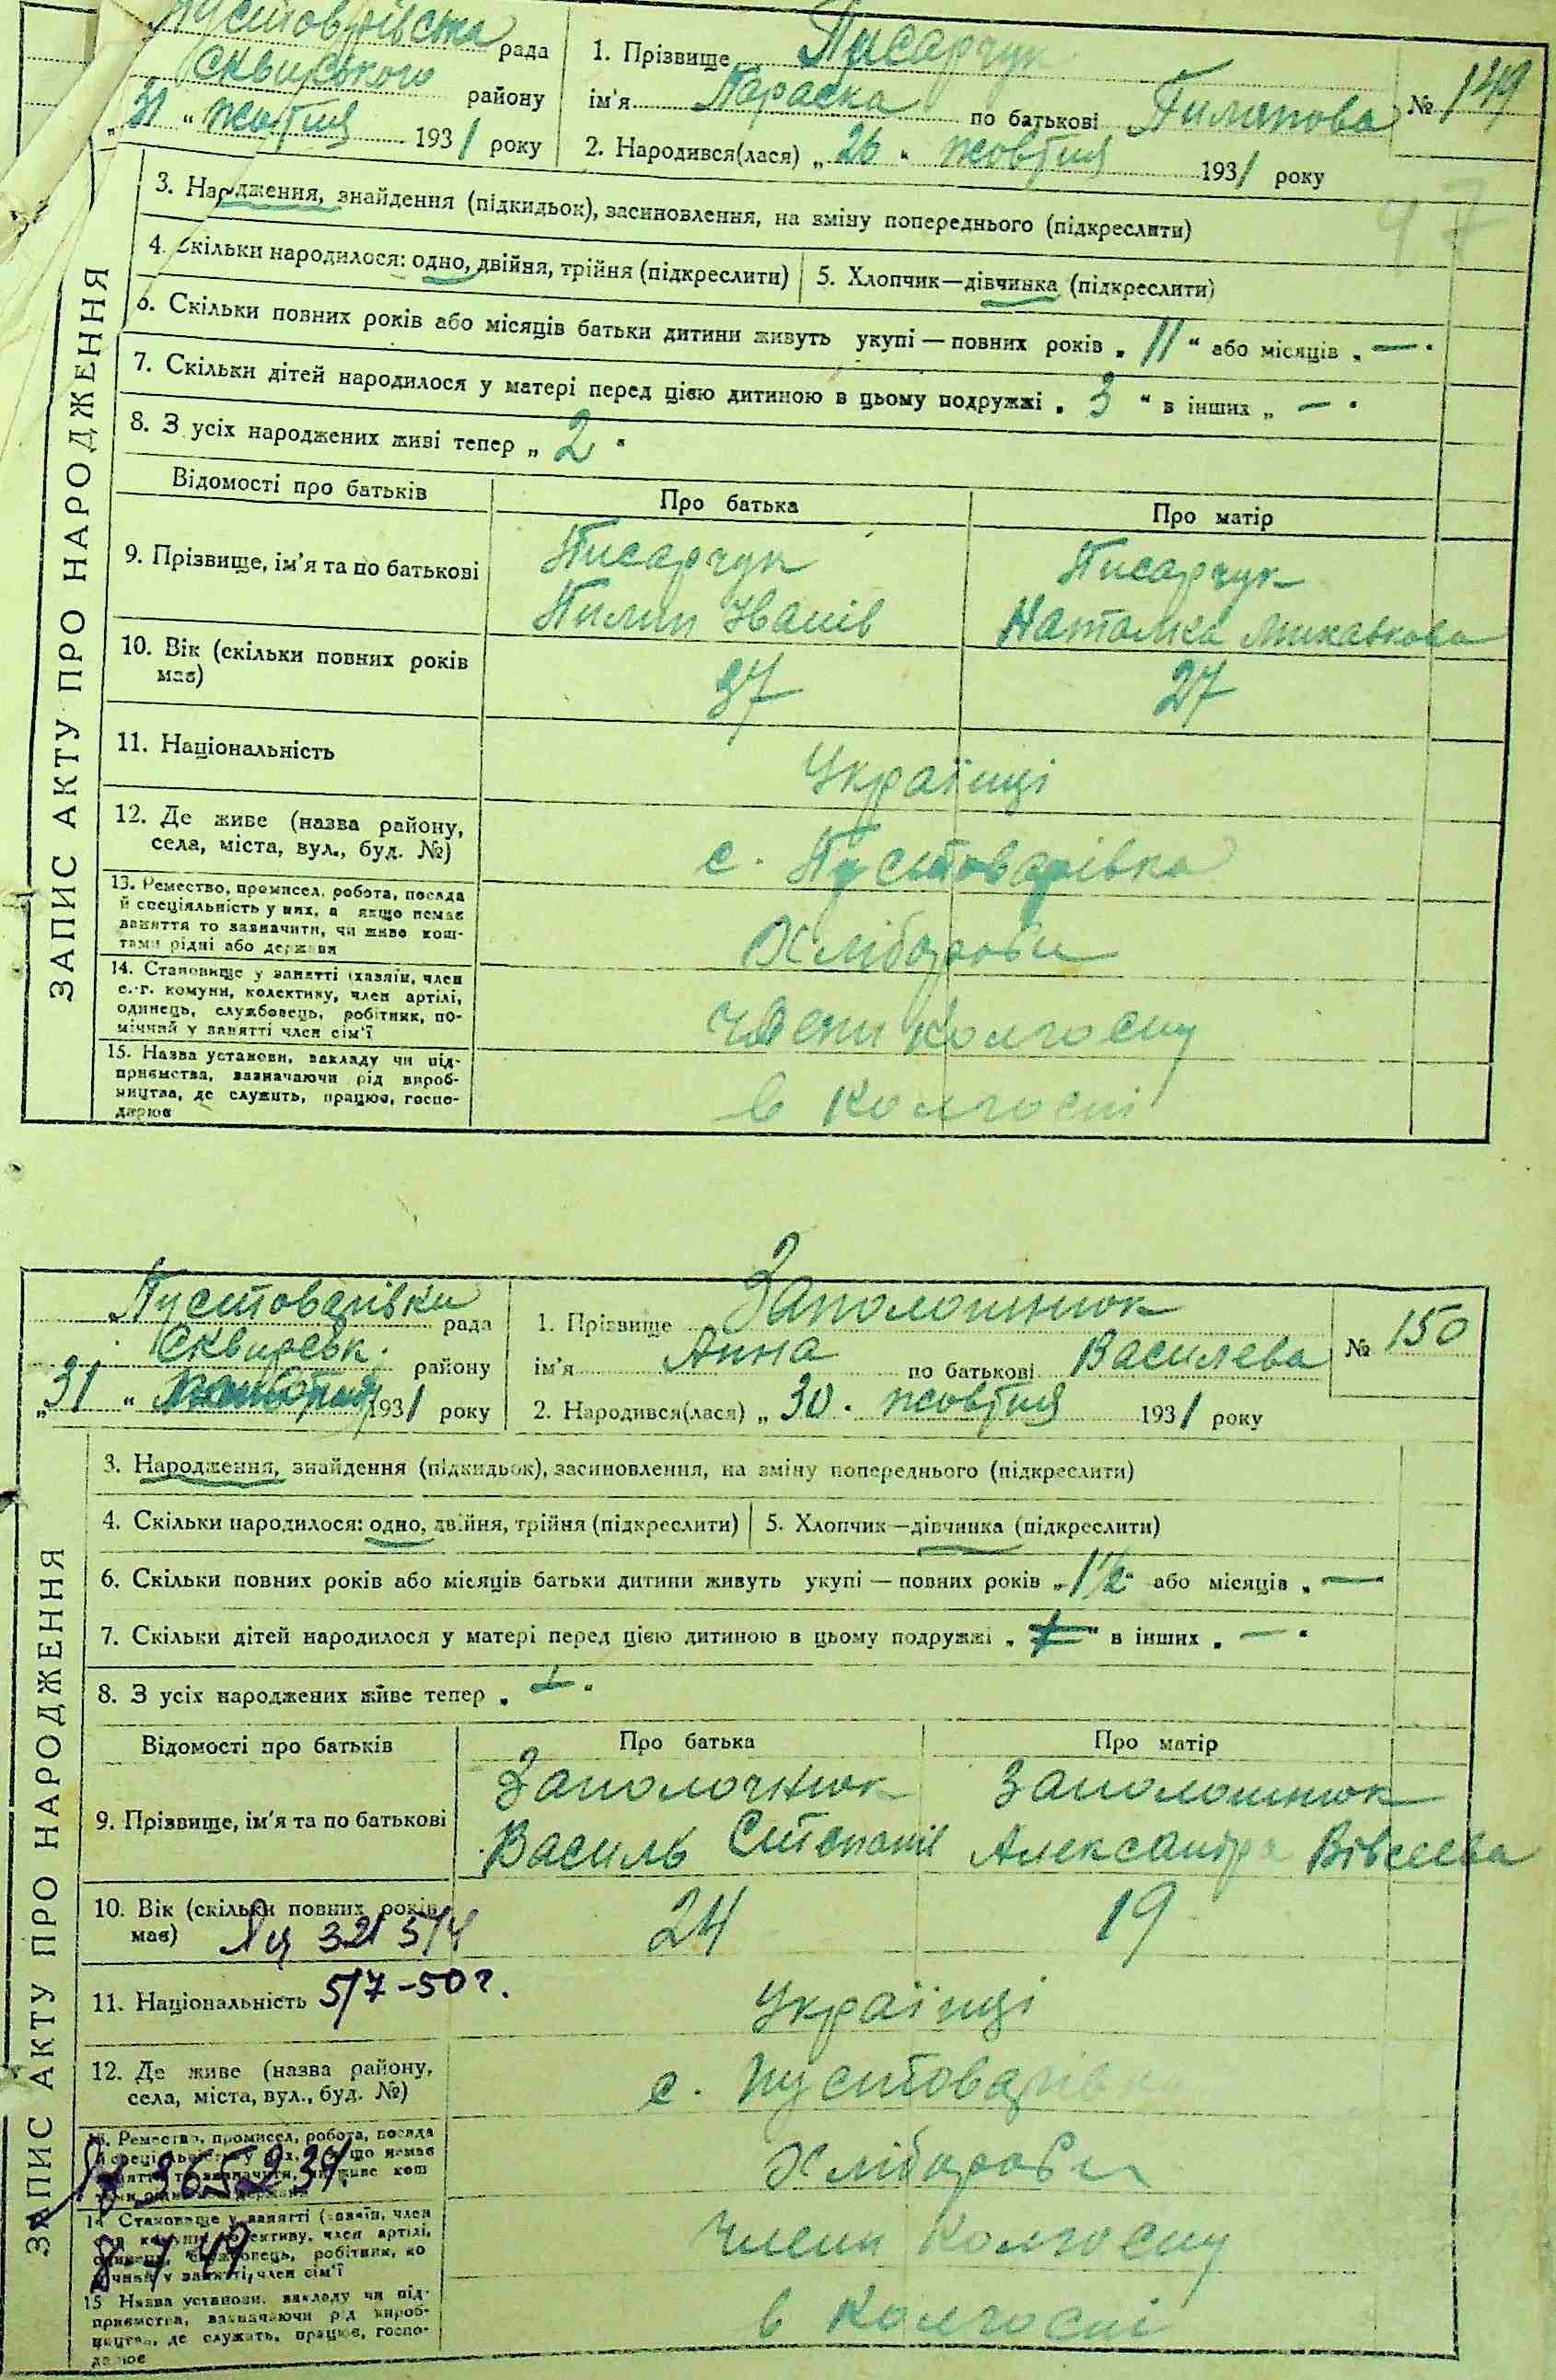 Пустоврівська рада
Сквирського району
„31“ жовтня 1931 року
1. Прізвище Писарчук
ім'я Параска по батькові Пилипова
№ 149
2. Народився(лася) „26“ жовтня 1931 року
ЗАПИС АКТУ ПРО НАРОДЖЕННЯ
3. Народження, знайдення (підкидьок), засиновлення, на зміну попереднього (підкреслити)
4. Скільки народилося: одно, двійня, трійня (підкреслити) 5. Хлопчик—дівчинка (підкреслити)
6. Скільки повних років або місяців батьки дитини живуть укупі — повних років „11“ або місяців „—“
7. Скільки дітей народилося у матері перед цією дитиною в цьому подружжі „3“ в інших „—“
8. З усіх народжених живі тепер „2“
Відомості про батьків Про батька Про матір
9. Прізвище, ім'я та по батькові
Писарчук
Пилип Іванів
Писарчук
Наталка
10. Вік (скільки повних років
має)
37 27
11. Національність
Українці
12. Де живе (назва району,
села, міста, вул., буд. №)
с. Пустоварівка
13. Ремество, промисел, робота, посада
й спеціяльність у них, а якщо немає
заняття то зазначити, чи живе кош-
тами рідні або держави
Хлібороби
14. Становище у занятті (хазяїн, член
с.-г. комуни, колективу, член артілі,
одинець, службовець, робітник, по-
мічний у занятті член сім'ї
члени колгоспу
15. Назва установи, закладу чи під-
приємства, зазначаючи рід вироб-
ництва, де служить, працює, госпо-
дарює
в колгоспі
Пустоварівки рада
Сквирськ. району
„31“ 1931 року
1. Прізвище Заполошнюк
ім'я Анна по батькові Василева
№ 150
2. Народився(лася) „30“ жовтня 1931 року
ЗАПИС АКТУ ПРО НАРОДЖЕННЯ
3. Народження, знайдення (підкидьок), засиновлення, на зміну попереднього (підкреслити)
4. Скільки народилося: одно, двійня, трійня (підкреслити) 5. Хлопчик—дівчинка (підкреслити)
6. Скільки повних років або місяців батьки дитини живуть укупі — повних років „1½“ або місяців „—
7. Скільки дітей народилося у матері перед цією дитиною в цьому подружжі „ “ в інших „—“
8. З усіх народжених живе тепер
Відомості про батьків Про батька Про матір
9. Прізвище, ім'я та по батькові
Заполочнюк
Василь Степанів
Заполошнюк
Александра Вівсеева
10. Вік (скільки повних років
має)
24 19
321 5/4
11. Національність
5/7-50 г.
Українці
12. Де живе (назва району,
села, міста, вул., буд. №)
с. Пустоварівка
13. Ремество, промисел, робота, посада
365237
Хлібороби
14. Становище у занятті (хазяїн, член
колективу, член артілі,
робітник,
у занятті, член сім'ї
8 7 49
члени колгоспу
15 Назва установи, закладу чи під-
приємства, зазначаючи рід вироб-
ництва, де служить, працює, госпо-
дарює
в колгоспі